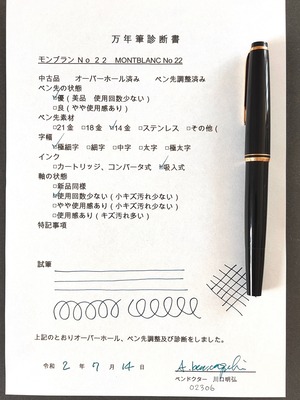 万年筆診断書
モンブランNo 22 MONTBLANC No 22
中古品 オーバーホール済み ペン先調整済み
ペン先の状態
☑優(美品 使用回数少ない)
□良(やや使用感あり 小キズ汚れ少ない)
ペン先素材
□21金 □18金 ☑14金 □ステンレス □その他(
字幅
☑極細字 □細字 □中字 □太字 □極太字
インク
□カートリッジ、コンバータ式 ☑吸入式
軸の状態
□新品同様
☑使用回数少ない(小キズ汚れ少ない)
□やや使用感あり(小キズ汚れ少ない)
□使用感あり(キズ汚れ多い)
特記事項
試筆
上記のとおりオーバーホール、ペン先調整及び診断をしました。
令和 2 年 7 月 14 日
ペンドクター 川口明弘
02306